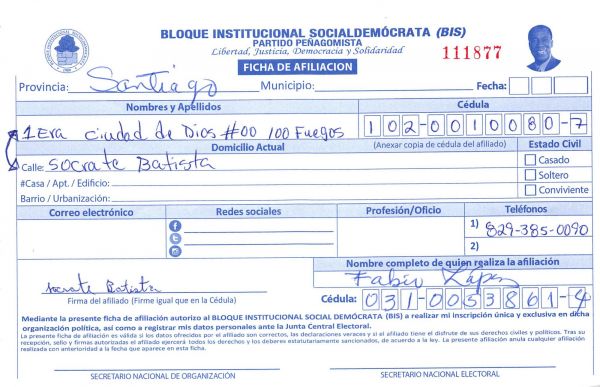 BLOQUE INSTITUCIONAL SOCIALDEMÓCRATA (BIS)
PARTIDO PEÑAGOMISTA
Libertad, Justicia, Democracia y Solidaridad
111877
FICHA DE AFILIACION
Provincia: Santiago Municipio: Fecha:
Nombres y Apellidos Cédula
1Era ciudad de Dios #00 100 Fuegos 102-0010080-7
Domicilio Actual (Anexar copia de cédula del afiliado) Estado Civil
Calle: Socrate Batista Casado
#Casa / Apt. / Edificio: Soltero
Barrio / Urbanización: Conviviente
Correo electrónico Redes sociales Profesión/Oficio Teléfonos
1) 829-385-0090
2)
Nombre completo de quien realiza la afiliación
Socrate Batista Fabio López
Firma del afiliado (Firme igual que en la Cédula) Cédula: 031-0053861-4
Mediante la presente ficha de afiliación autorizo al BLOQUE INSTITUCIONAL SOCIAL DEMÓCRATA (BIS) a realizar mi inscripción única y exclusiva en dicha
organización política, así como a registrar mis datos personales ante la Junta Central Electoral.
La presente ficha de afiliación es válida si los datos ofrecidos por el afiliado son correctos, las declaraciones veraces y si el afiliado tiene el disfrute de sus derechos civiles y políticos. Tras su
recepción, sello y firmas autorizadas el afiliado ejercerá todos los derechos y los deberes estatutariamente sancionados, de acuerdo a la ley. La presente afiliación anula cualquier afiliación
realizada con anterioridad a la fecha que aparece en esta ficha.
SECRETARIO NACIONAL DE ORGANIZACIÓN SECRETARIO NACIONAL ELECTORAL